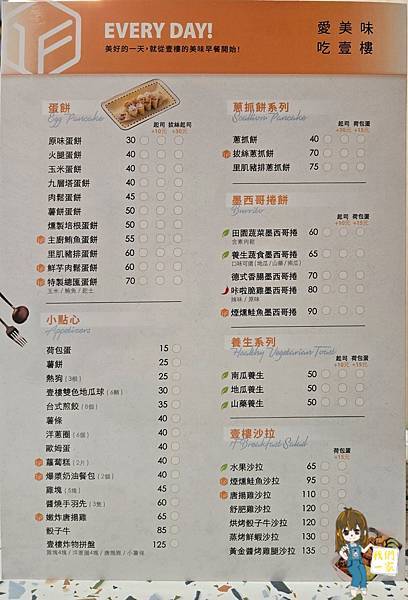 EVERY DAY!
美好的一天，就從壹樓的美味早餐開始！
愛美味
吃壹樓
蛋餅
Egg Pancake
起司 +10元
拔絲起司 +30元
原味蛋餅 30
火腿蛋餅 40
玉米蛋餅 40
九層塔蛋餅 40
肉鬆蛋餅 45
薯餅蛋餅 50
燻製培根蛋餅 50
主廚鮪魚蛋餅 55
里肌豬排蛋餅 60
鮮芋肉鬆蛋餅 60
特製總匯蛋餅 70
玉米 / 鮪魚 / 起士
小點心
Appetizers
荷包蛋 15
薯餅 25
熱狗 (3根) 25
壹樓雙色地瓜球 (6顆) 30
台式煎餃 (8個) 35
薯條 40
洋蔥圈 (6個) 40
歐姆蛋 40
蘿蔔糕 (2片) 40
爆漿奶油餐包 (2個) 40
雞塊 (5塊) 45
醬燒手羽先 (3隻) 60
嫩炸唐揚雞 65
骰子牛 85
壹樓炸物拼盤 125
雞塊4塊 / 洋蔥圈4塊 / 唐揚雞 / 小薯條
蔥抓餅系列
Scallion Pancake
起司 +10元
荷包蛋 +15元
蔥抓餅 40
拔絲蔥抓餅 70
里肌豬排蔥抓餅 75
墨西哥捲餅
Burrito
起司 +10元
荷包蛋 +15元
田園蔬菜墨西哥捲 60
含素肉鬆
養生蔬食墨西哥捲 65
口味可選 (地瓜 / 山藥 / 南瓜)
德式香腸墨西哥捲 70
咔啦脆雞墨西哥捲 80
辣味 / 原味
煙燻鮭魚墨西哥捲 90
養生系列
Healthy Vegetarian Toast
起司 +10元
荷包蛋 +15元
南瓜養生 50
地瓜養生 50
山藥養生 50
壹樓沙拉
1F Breakfast Salad
荷包蛋 +15元
水果沙拉 65
煙燻鮭魚沙拉 95
唐揚雞沙拉 110
舒肥雞沙拉 120
烘烤骰子牛沙拉 120
蒸烤鮮蝦沙拉 130
黃金醬烤雞腿沙拉 135
我們一家